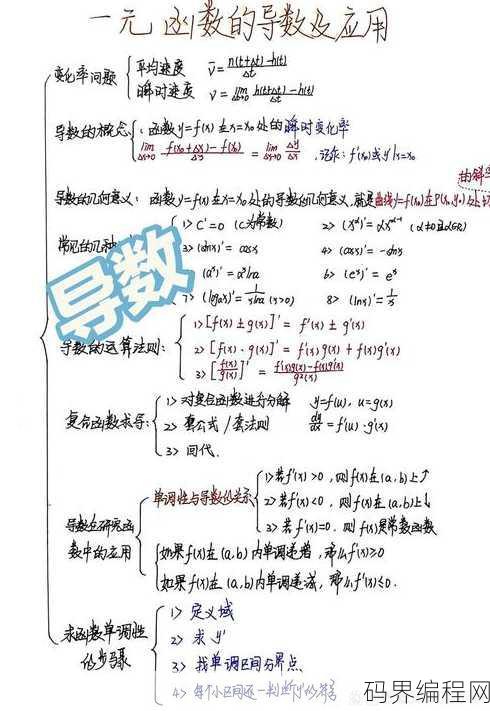 一元函数的导数及应用
变化率问题
平均速度 v̄ = h(t+Δt)-h(t) / Δt
瞬时速度 v = lim Δt→0 h(t+Δt)-h(t) / Δt
导数的概念: 函数y=f(x)在x=x₀处的瞬时变化率
lim Δx→0 f(x₀+Δx)-f(x₀) / Δx = lim Δx→0 Δy/Δx 记作: f'(x₀)或y'|x=x₀
的斜
导数的几何意义: 函数y=f(x)在x=x₀处的导数的几何意义,就是曲线y=f(x)在P(x₀,y₀)处
常见的几种
1> C'=0 (C为常数) 2> (x^α)'=αx^(α-1)
3> (sinx)'=cosx 4> (cosx)'=-sinx
(a^x)'=a^x lna 6> (e^x)'=e^x
7> (logax)'=1/xlna (x>0) 8> (lnx)'=1/x
导数
导数的运算法则:
1> [f(x)±g(x)]'=f'(x)±g'(x)
2> [f(x)·g(x)]'=f'(x)g(x)+f(x)g'(x)
3> [f(x)/g(x)]'=f'(x)g(x)-f(x)g'(x) / g²(x)
复合函数求导:
1> 对复合函数进行分解 y=f(u), u=g(x)
2> 套公式/套法则 dy/dx=f'(u)·g'(x)
3> 回代.
导数在研究函数中的应用
单调性与导数的关系
1> 若f'(x)>0, 则f(x)在(a,b)上↑
2> 若f'(x)<0, 则f(x)在(a,b)上↓
3> 若f'(x)=0. 则f(x)是常数函数
如果f(x)在(a,b)内单调递增,那么f'(x)≥0
如果f(x)在(a,b)内单调递减,那么f'(x)≤0.
求函数单调性的步骤
1> 定义域
2> 求y'
3> 找单调区间分界点
4> 每个小区间逐一判断y'的符号
码界编程网